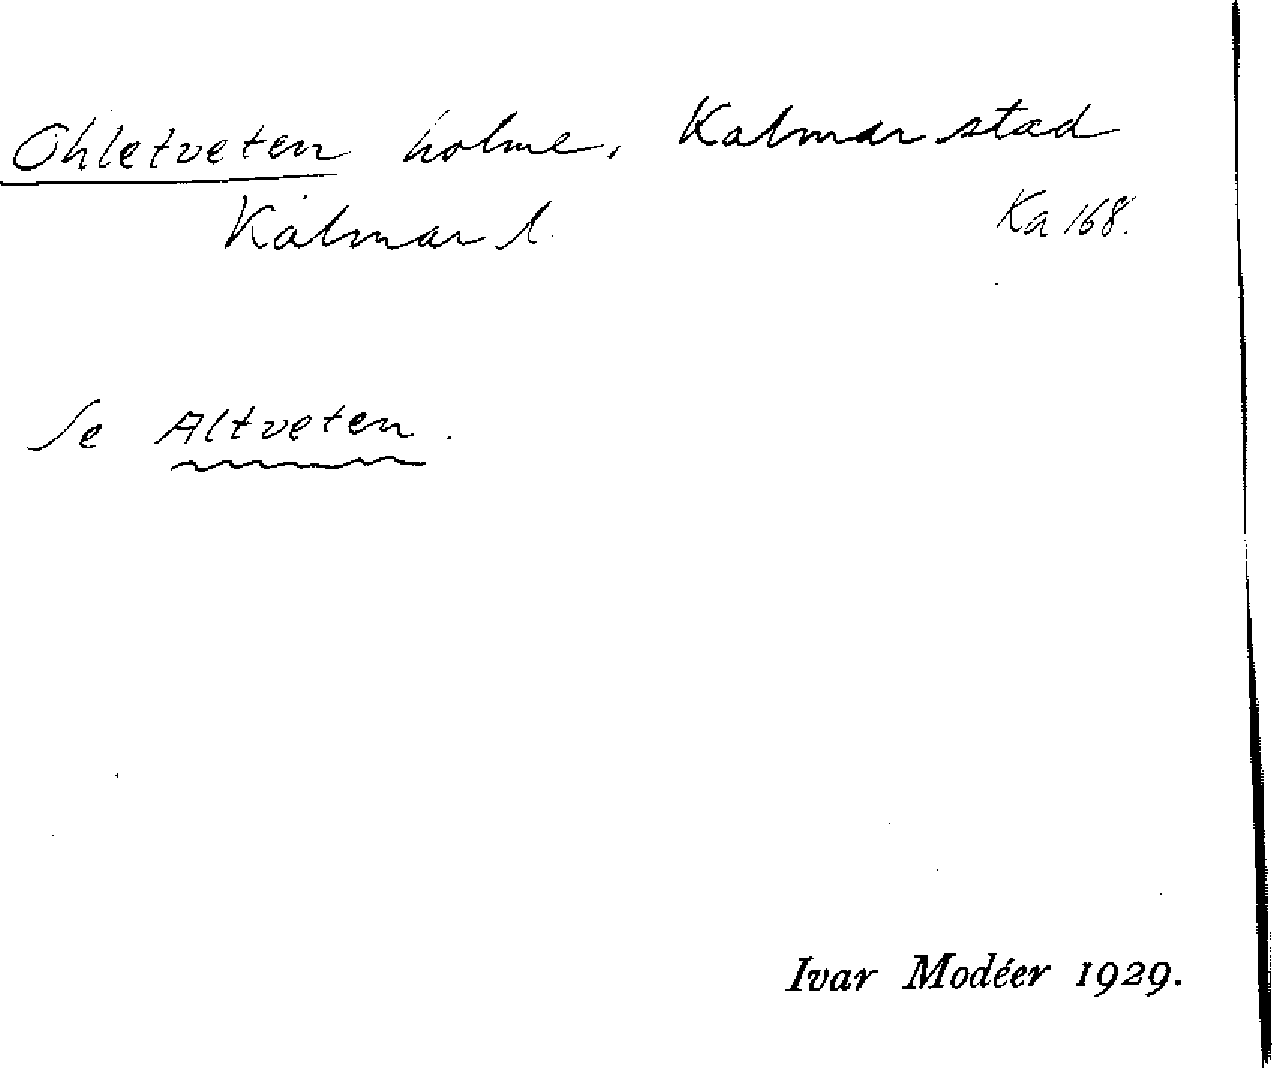 Ohletveten holme, Kalmar stad
Kalmar l. Ka 168.
Se Altveten.
Ivar Modéer 1929.